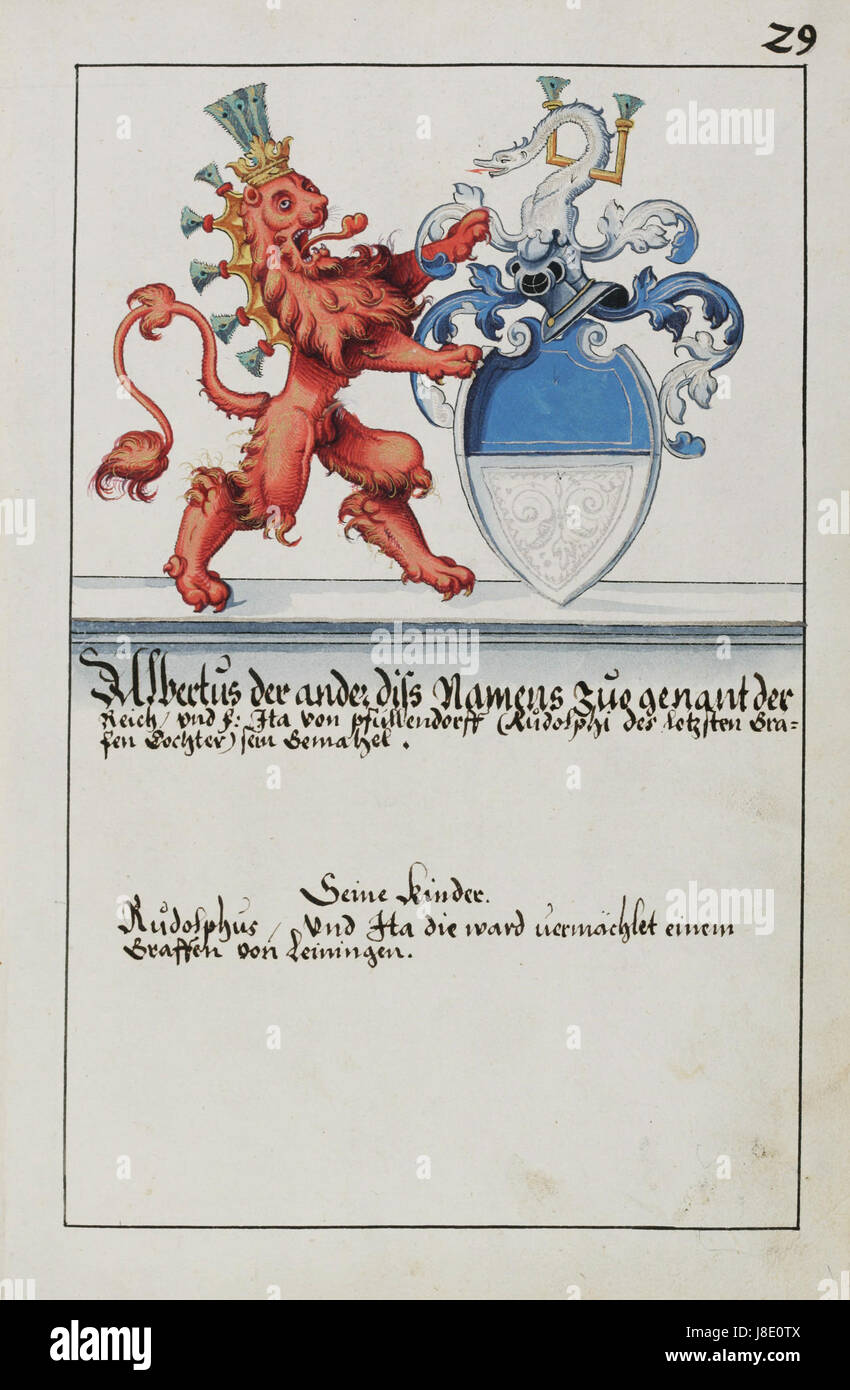 29
Albertus der ander diss Namens zuegenant der
Reich/ vnd f: Ita von pfullendorff (Růdolphi des letzsten Gra=
fen Tochter) sein Gemahel.
Seine kinder.
Růdolphus/ Vnd Ita die ward vermächlet einem
Graffen von Leiningen.
alamy
Image ID: J8E0TX
www.alamy.com